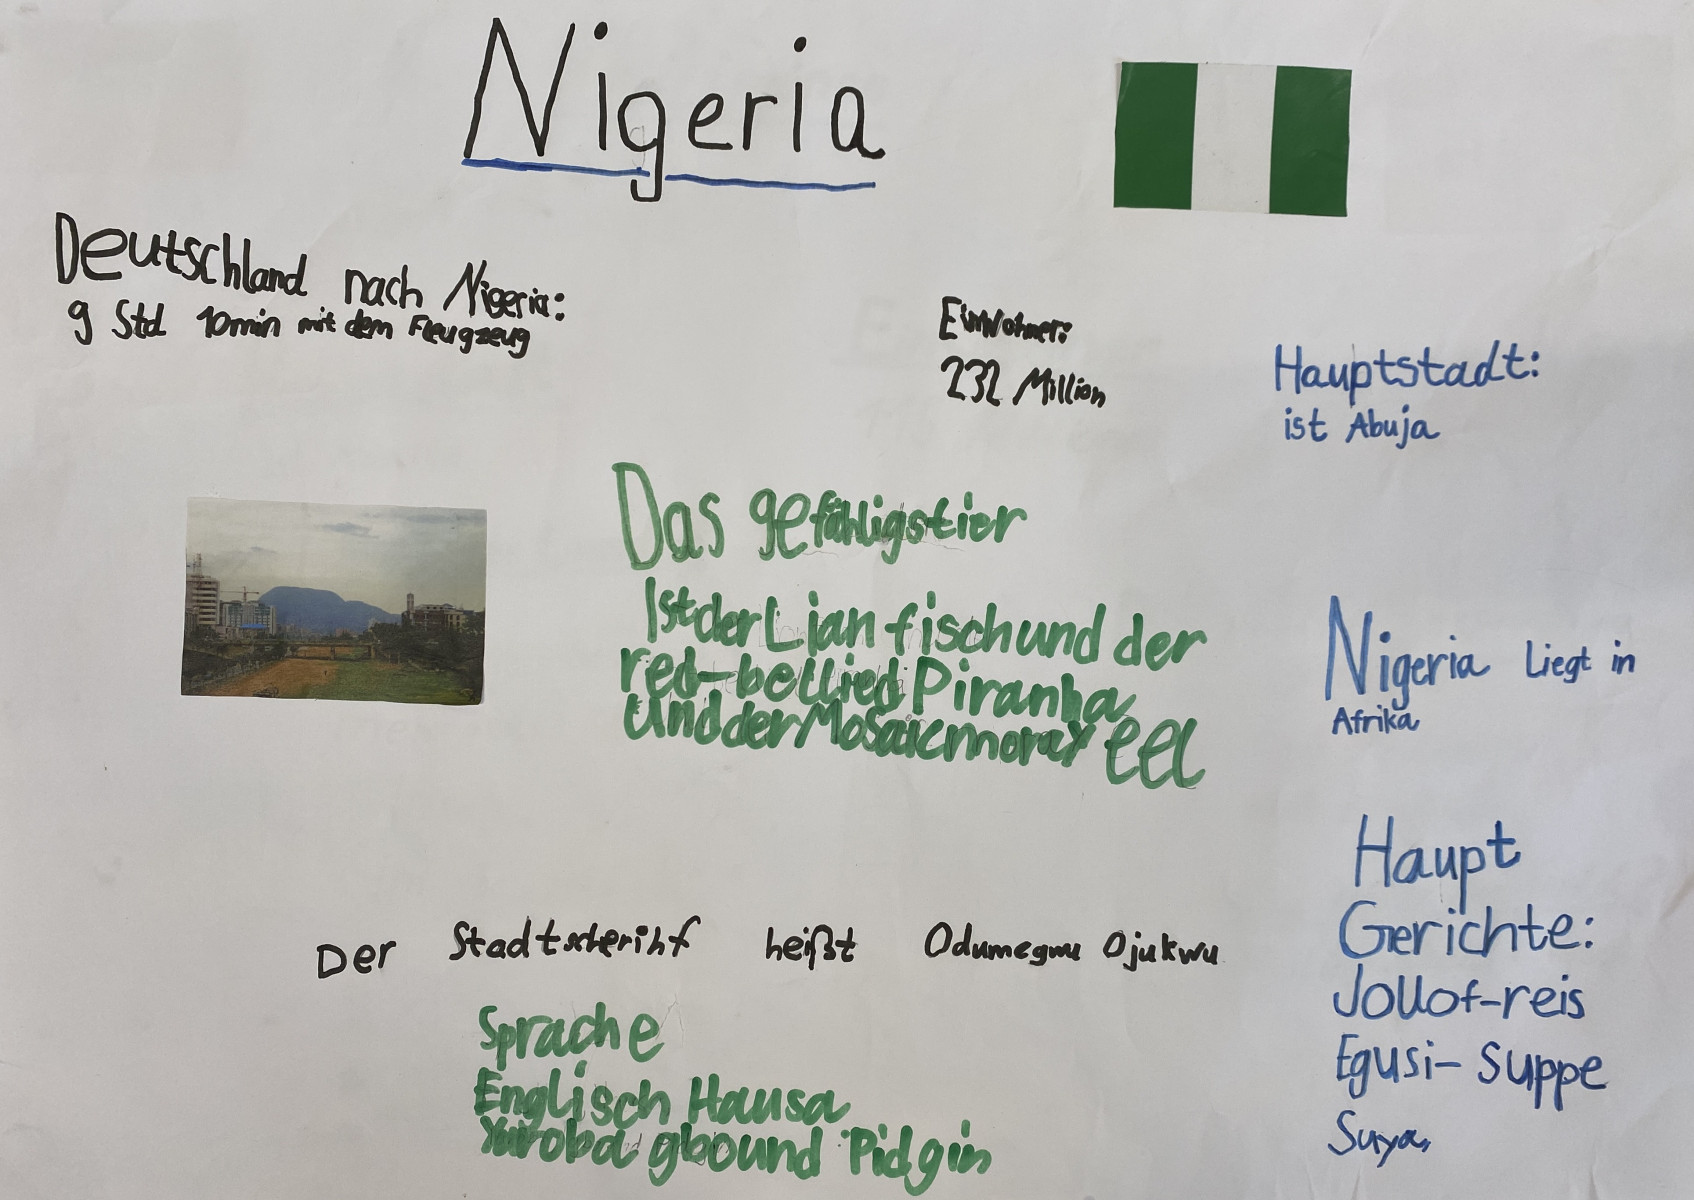 Nigeria
Deutschland nach Nigeria:
9 Std 10min mit dem Fleugzeug
Einwohner:
232 Million
Hauptstadt:
ist Abuja
Das gefähligstier
Ist der Lian fisch und der
red-bellied Piranha
und der Mosaic moray eel
Nigeria Liegt in
Afrika
Haupt
Gerichte:
Jollof-reis
Egusi-Suppe
Suya,
Der heißt Odumegwu Ojukwu
Sprache
Englisch Hausa
Yuroba gbound Pidgin